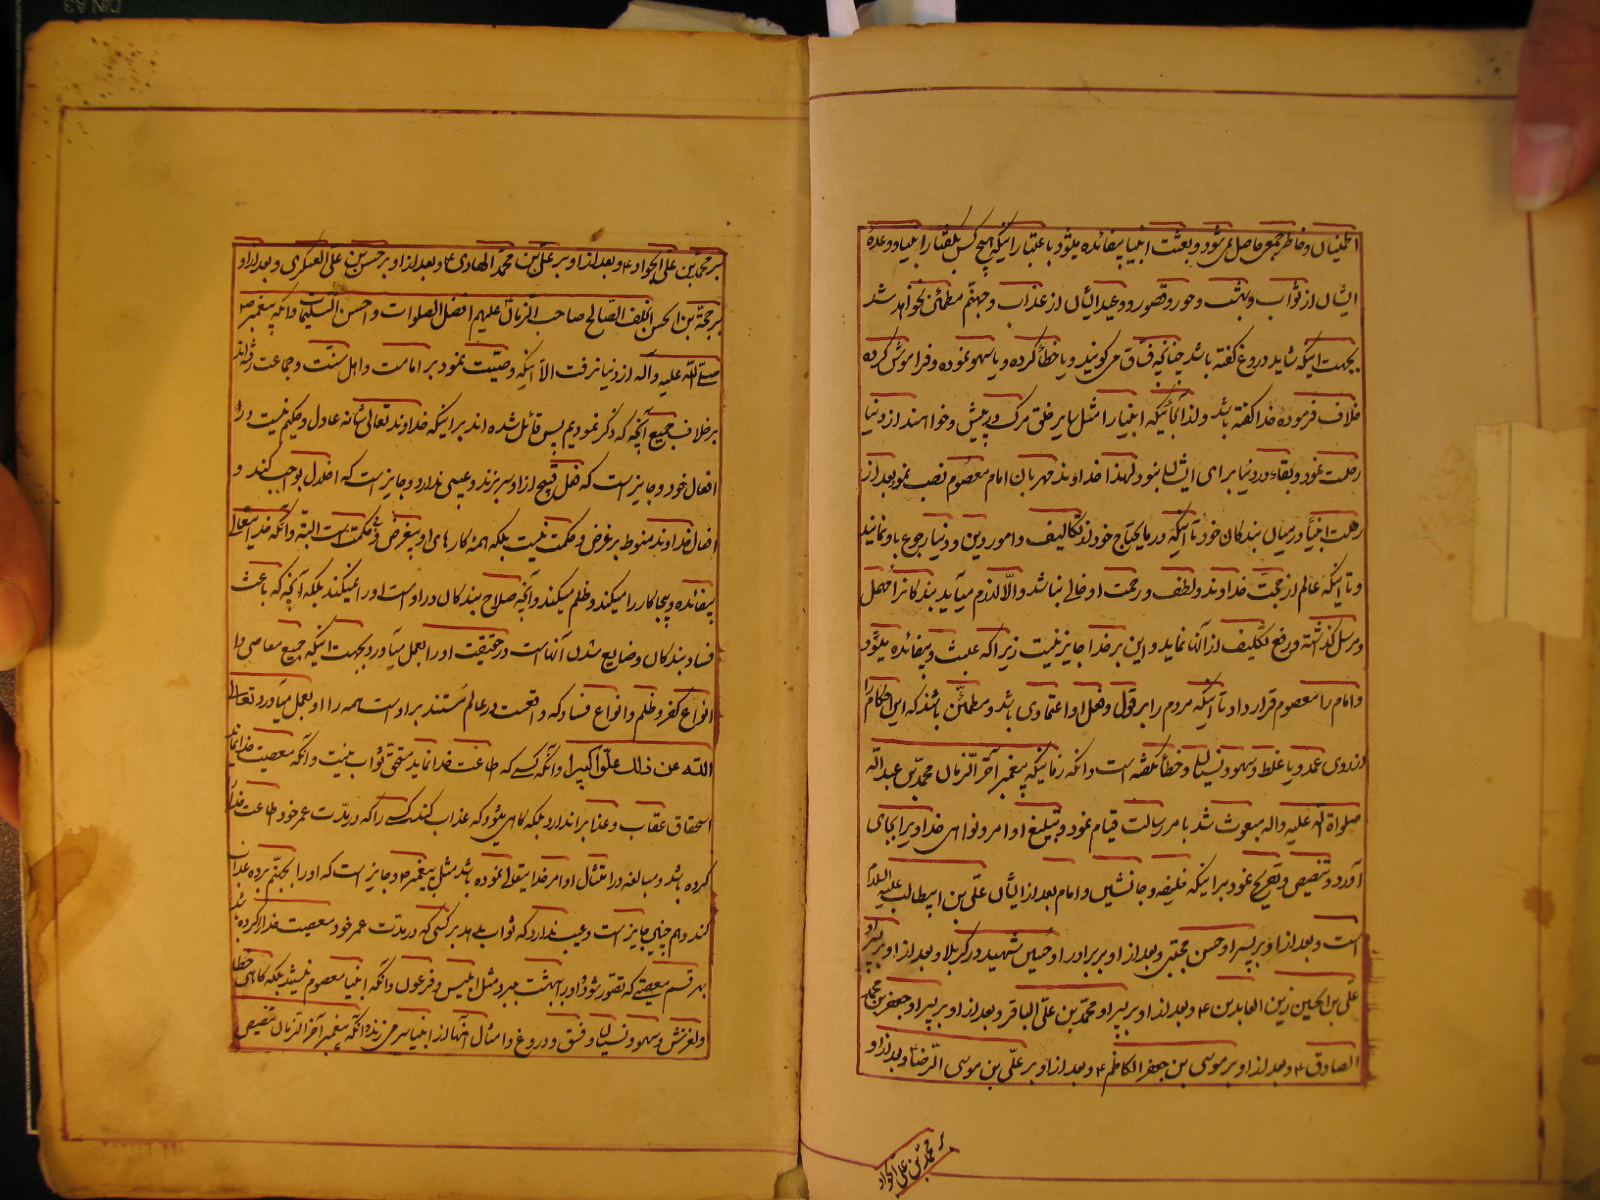 اطمینان و خاطر جمعی حاصل نمی‌شود و بعثت انبیا بیفائده میشود باعتبار اینکه هیچ کس بگفتار انبیا و وعدهٔ
ایشان از ثواب و بهشت و حور و قصور و وعید ایشان از عذاب و جهنّم مطمئن نخواهد شد
بجهت اینکه شاید دروغ گفته باشد چنانچه فسّاق می‌گویند و یا خطأ کرده و یا سهو نموده و فراموش کرده
خلاف فرمودهٔ خدا گفته باشد و از آنجائیکه انبیا را مثل سایر خلق مرگ در پیش و خواهند از دنیا
رحلت نمود و بقاء در دنیا برای ایشان نبود لهذا خداوند مهربان امام معصوم نصب نمود بعد از
رحلت انبیا در میان بندکان خود تا اینکه در مایحتاج خود از تکالیف و امور دین و دنیا رجوع باو نمایند
و تا اینکه عالم از حجّت خداوند و لطف و رحمت او خالی نباشد و الّا لازم میآید بندکانرا مهمل
و مرسل گذاشته و رفع تکلیف از آنها نماید و این بر خدا جایز نیست زیرا که عبث و بیفائده میشود
و امام را معصوم قرار داد تا اینکه مردم را بر قول و فعل او اعتمادی باشد و مطمئن باشند که این احکام را
از روی عمد و یا غلط و سهو و نسیان و خطأ نگفته است و انکه زمانیکه پیغمبر آخر الزمان محمّد بن عبد الله
صلواة الله علیه واله مبعوث شد بامر رسالت قیام نمود و تبلیغ اوامر و نواهی خداوند را بجای
آورد و تنصیص و تصریح نمود بر اینکه خلیفه و جانشین و امام بعد از ایشان علی بن ابیطالب علیه السلام
است و بعد از او بر پسر او حسن مجتبی و بعد از او بر برادر او حسین شهید در کربلا و بعد از او بر پسر او
علی بن الحسین زین العابدین ۴ و بعد از او بر پسر او محمّد بن علیّ الباقر و بعد از او بر پسر او جعفر بن محمد
الصادق ۴ و بعد از او بر موسی بن جعفر الکاظم ۴ و بعد از او بر علیّ بن موسی الرّضا و بعد از او
بر محمد بن علی الجواد
بر محمد بن علی الجواد ۴ و بعد از او بر علیّ بن محمّد الهادی ۴ و بعد از او بر حسن بن علی العسکری و بعد از او
بر حجّة بن الحسن الخلف الصالح صاحب الزمان علیهم افضل الصلوات و احسن التسلیمات و انکه پیغمبر ص
صلّی الله علیه وآله از دنیا نرفت الّا اینکه وصیّت نمود بر امامت و اهل سنّت و جماعت رفته‌اند
بر خلاف جمیع آنچه که ذکر نمودیم پس قائل شده اند بر اینکه خداوند تعالی شانه عادل و حکیم نیست در
افعال خود و جایز است که فعل قبیح از او سر بزند و عیبی ندارد و جایز است که اخلال بواجب کند و
افعال خداوند منوط بر غرض و حکمت نیست بلکه همهٔ کارهای او بیغرض و بی‌حکمت است البتّه و انکه خدایتعالی
بیفائده و بیجا کار را میکند و ظلم میکند و آنچه صلاح بندکان در او است او را نمیکند بلکه آنچه که باعث
فساد بندکان و ضایع شدن آنها است در حقیقت او را بعمل میآورد بجهت اینکه جمیع معاصی و
انواع کفر و ظلم و انواع فساد که واقعست در عالم مستند بر او است همه را او بعمل میآورد تعالی
الله عن ذلک علوّا کبیرا و انکه کسی که طاعت خدا نماید مستحقّ ثواب نیست و انکه معصیت خدا نماید
استحقاق عقاب و عذاب را ندارد بلکه گاهی میشود که عذاب کند کسی را که در مدّت عمر خود طاعت خدا را
کرده باشد و مبالغه در امتثال اوامر خدایتعالی نموده باشد مثل پیغمبر ص و جایز است که او را بجهنّم برده عذاب
کند و هم چنین جایز است و عیب ندارد که ثواب بدهد بر کسی که در مدت عمر خود معصیت خدا را کرده باشد
بهر قسم معصیتی که تصور شود و او را ببهشت ببرد مثل ابلیس و فرعون و انکه انبیا معصوم نیستند بلکه گاهی خطا
و لغزش و سهو و نسیان و فسق و دروغ و امثال آنها از انبیا سر می‌زند و انکه پیغمبر آخر الزمان تنصیص